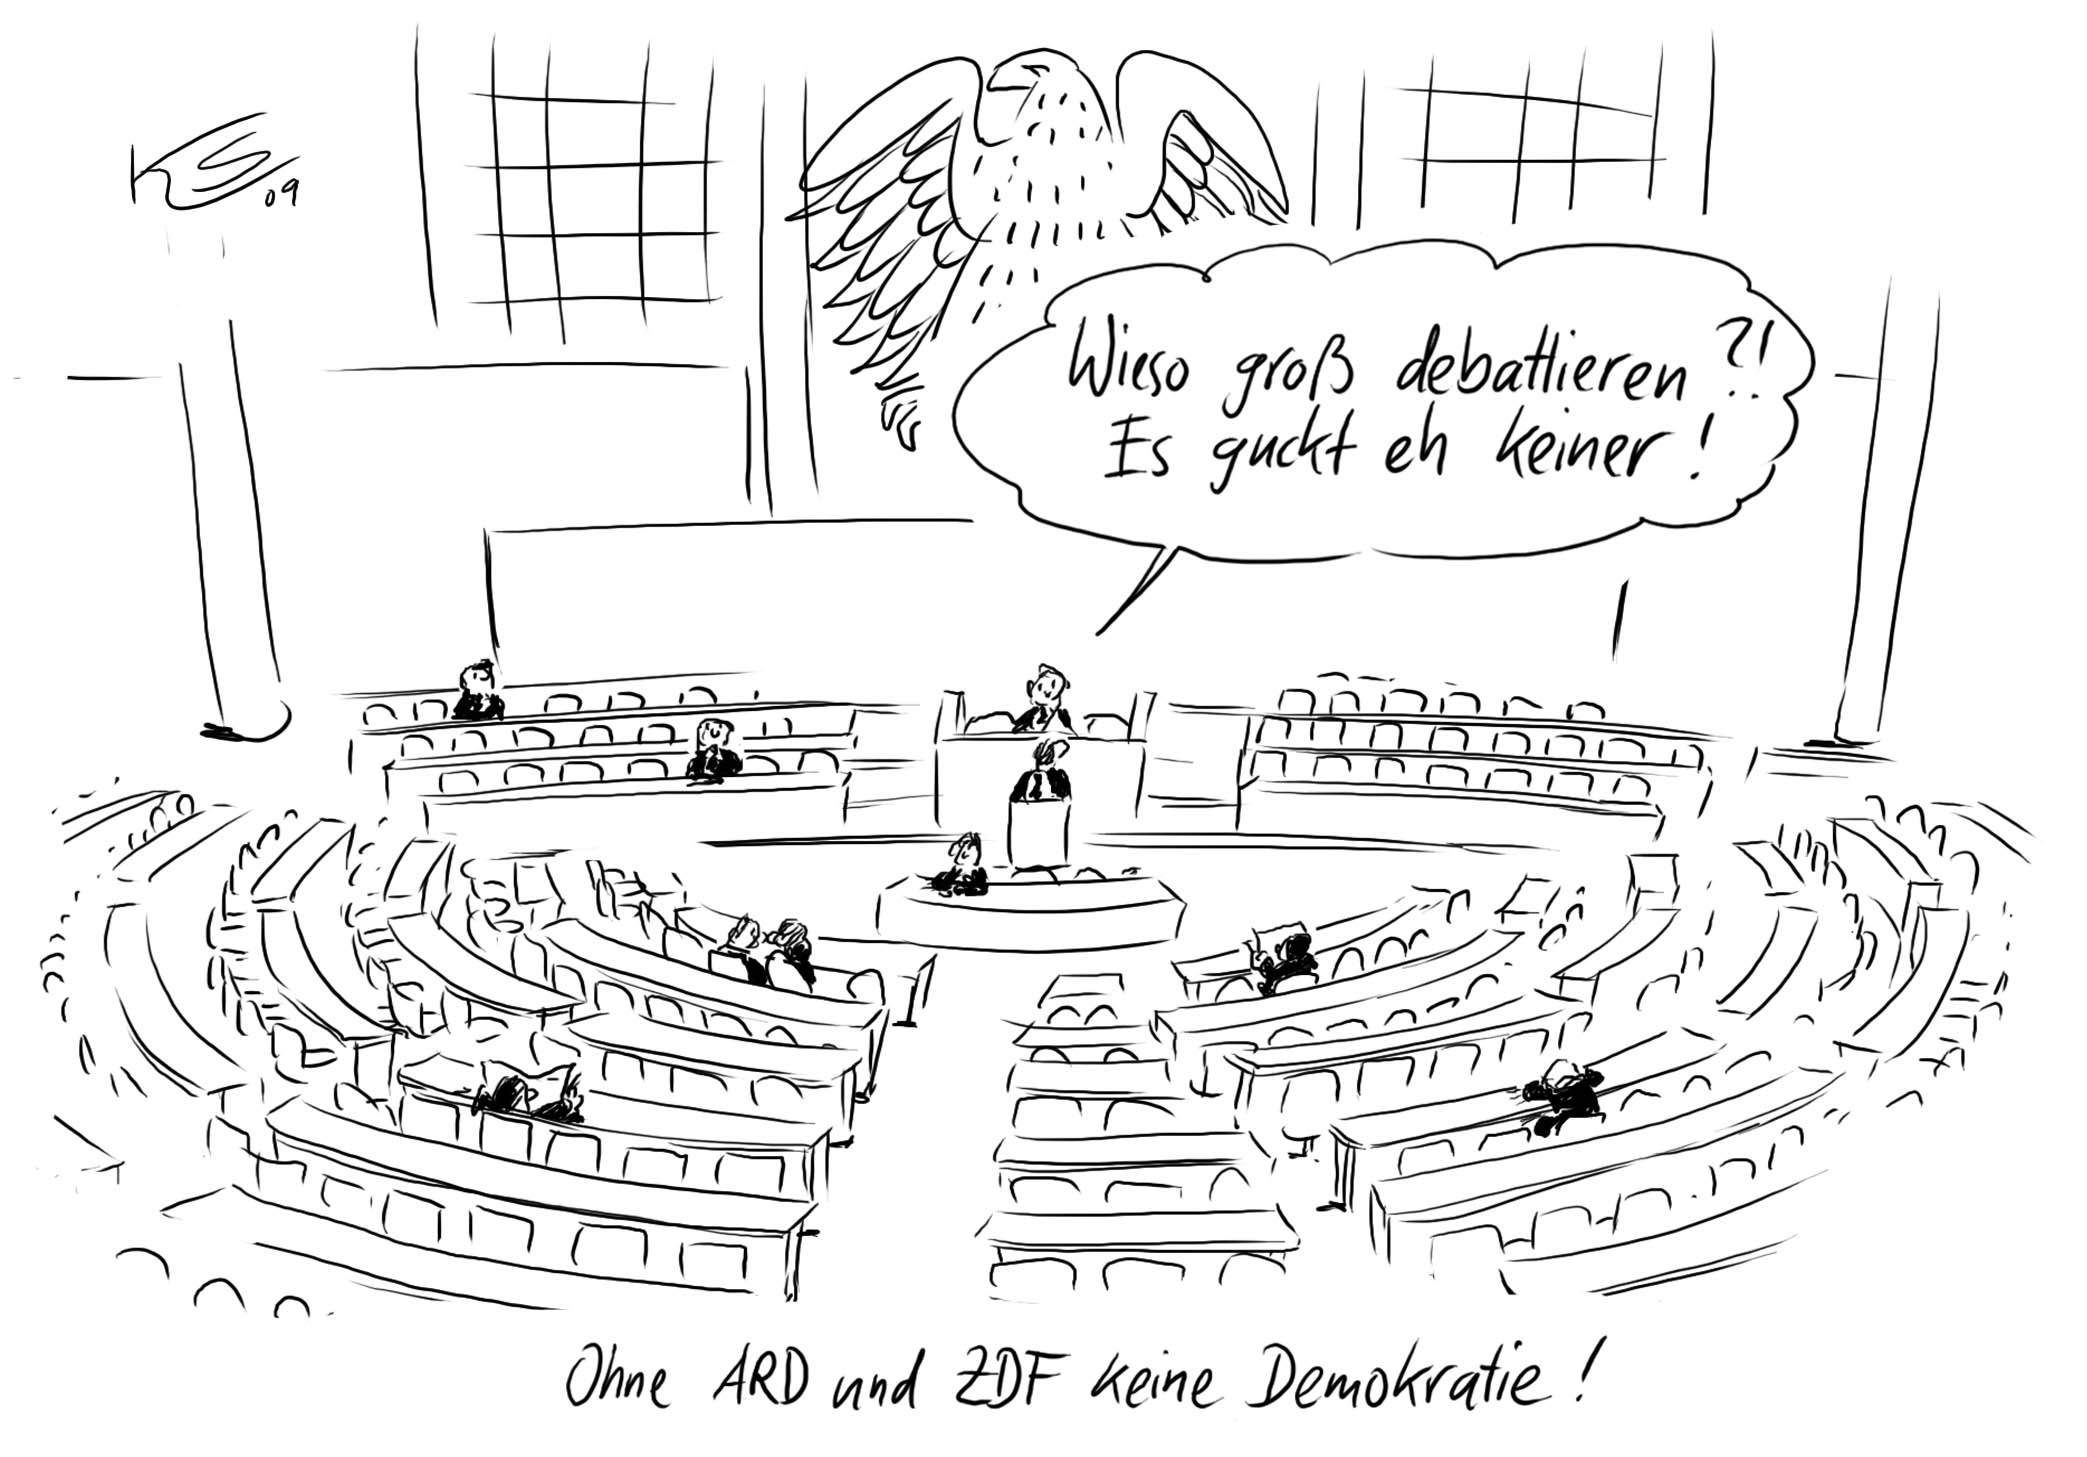 KS 09
Wieso groß debattieren?!
Es guckt eh keiner!
Ohne ARD und ZDF keine Demokratie!